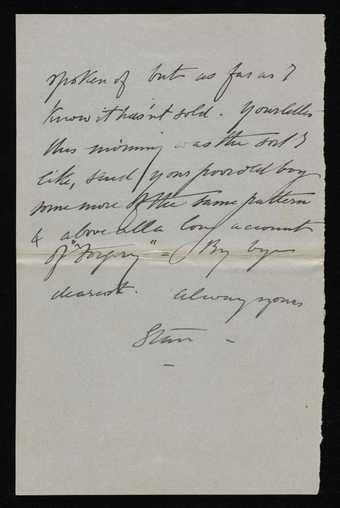 spoken of but as far as I
know it hasn't sold. Your letter
this morning was the sort I
like, send your poor old boy
some more of the same pattern
& above all a long account
of "Forgery" = By bye
dearest. Always yours
Stan